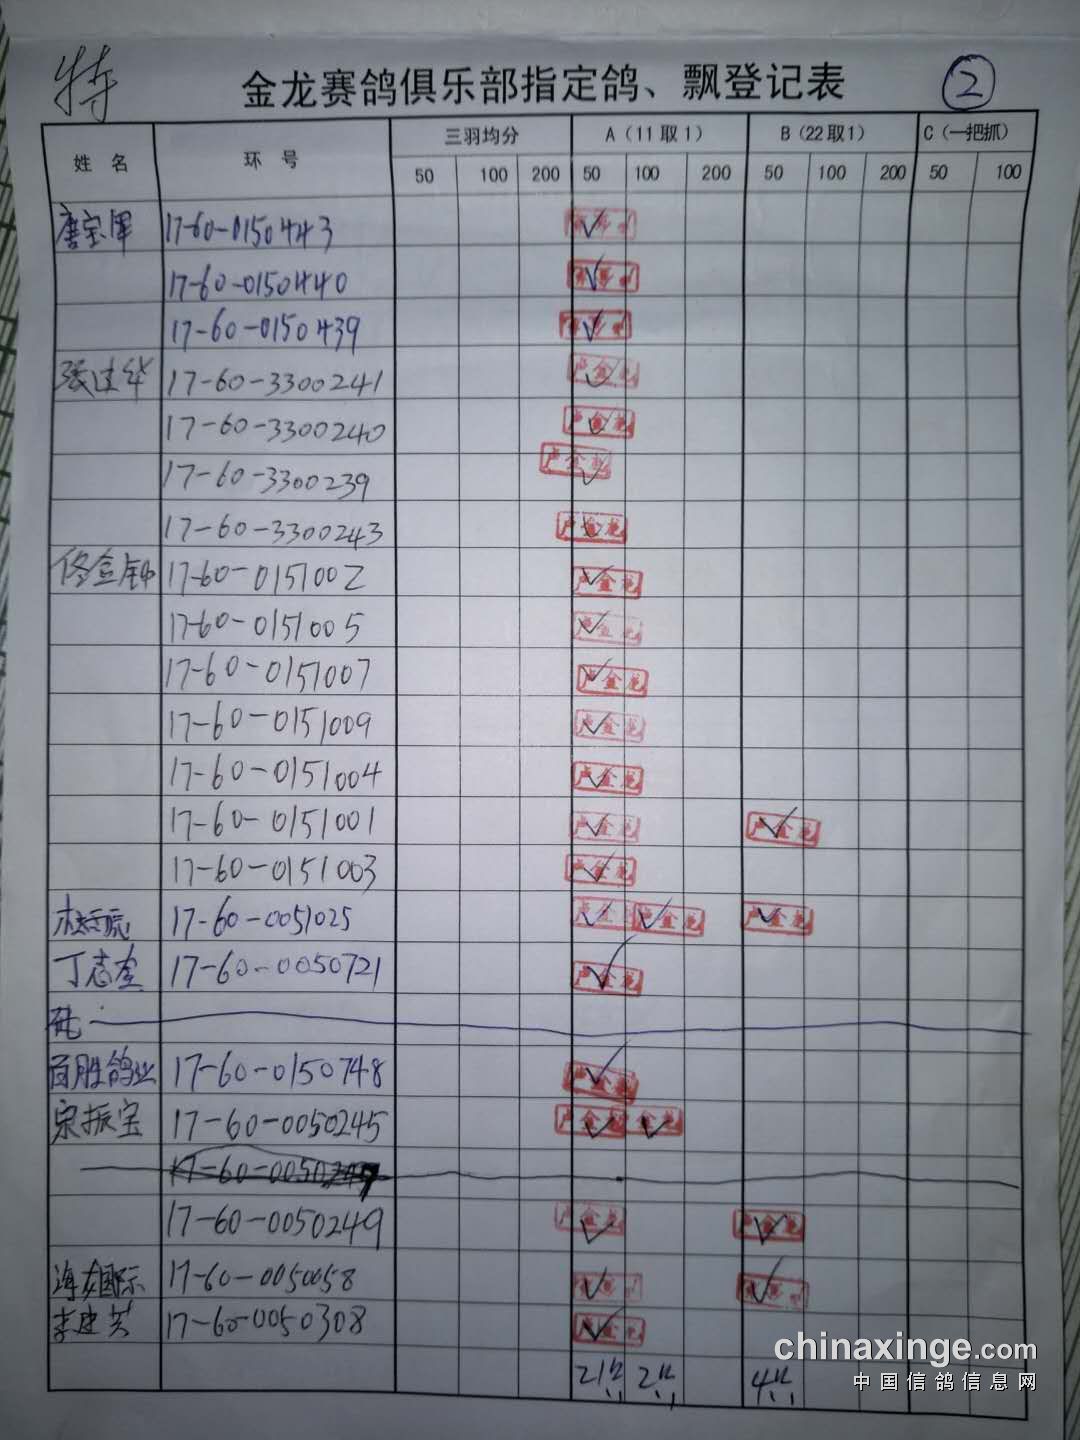 特
金龙赛鸽俱乐部指定鸽、飘登记表
②
姓名 环号 三羽均分 A(11取1) B(22取1) C(一把抓)
50 100 200 50 100 200 50 100 200 50 100
唐宝军 17-60-0150443 ✓
17-60-0150440 ✓
17-60-0150439 ✓
张建华 17-60-3300241 卢金龙 ✓
17-60-3300240 卢金龙 ✓
17-60-3300239 卢金龙 ✓
17-60-3300243 卢金龙 ✓
佟金钟 17-60-0151002 卢金龙 ✓
17-60-0151005 卢金龙 ✓
17-60-0151007 卢金龙 ✓
17-60-0151009 卢金龙 ✓
17-60-0151004 卢金龙 ✓
17-60-0151001 卢金龙 ✓ 卢金龙 ✓
17-60-0151003 卢金龙 ✓
17-60-0051025 卢金龙 ✓ 卢金龙 ✓ 卢金龙 ✓
丁志奎 17-60-0050721 卢金龙 ✓
百胜鸽业 17-60-0150748 卢金龙 ✓
宋振宝 17-60-0050245 卢金龙 ✓ 金龙 ✓
17-60-0050
17-60-0050249 卢金龙 ✓ 卢金龙 ✓
海龙国际 17-60-0050058 ✓ ✓
李建芳 17-60-0050308 卢金龙 ✓
21 2 4
chinaxinge.com
中国信鸽信息网